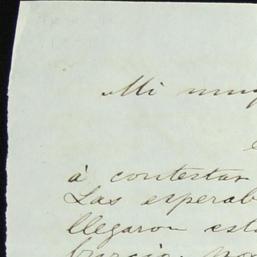 Mi muy
á contestar
Las esperab
llegaron est